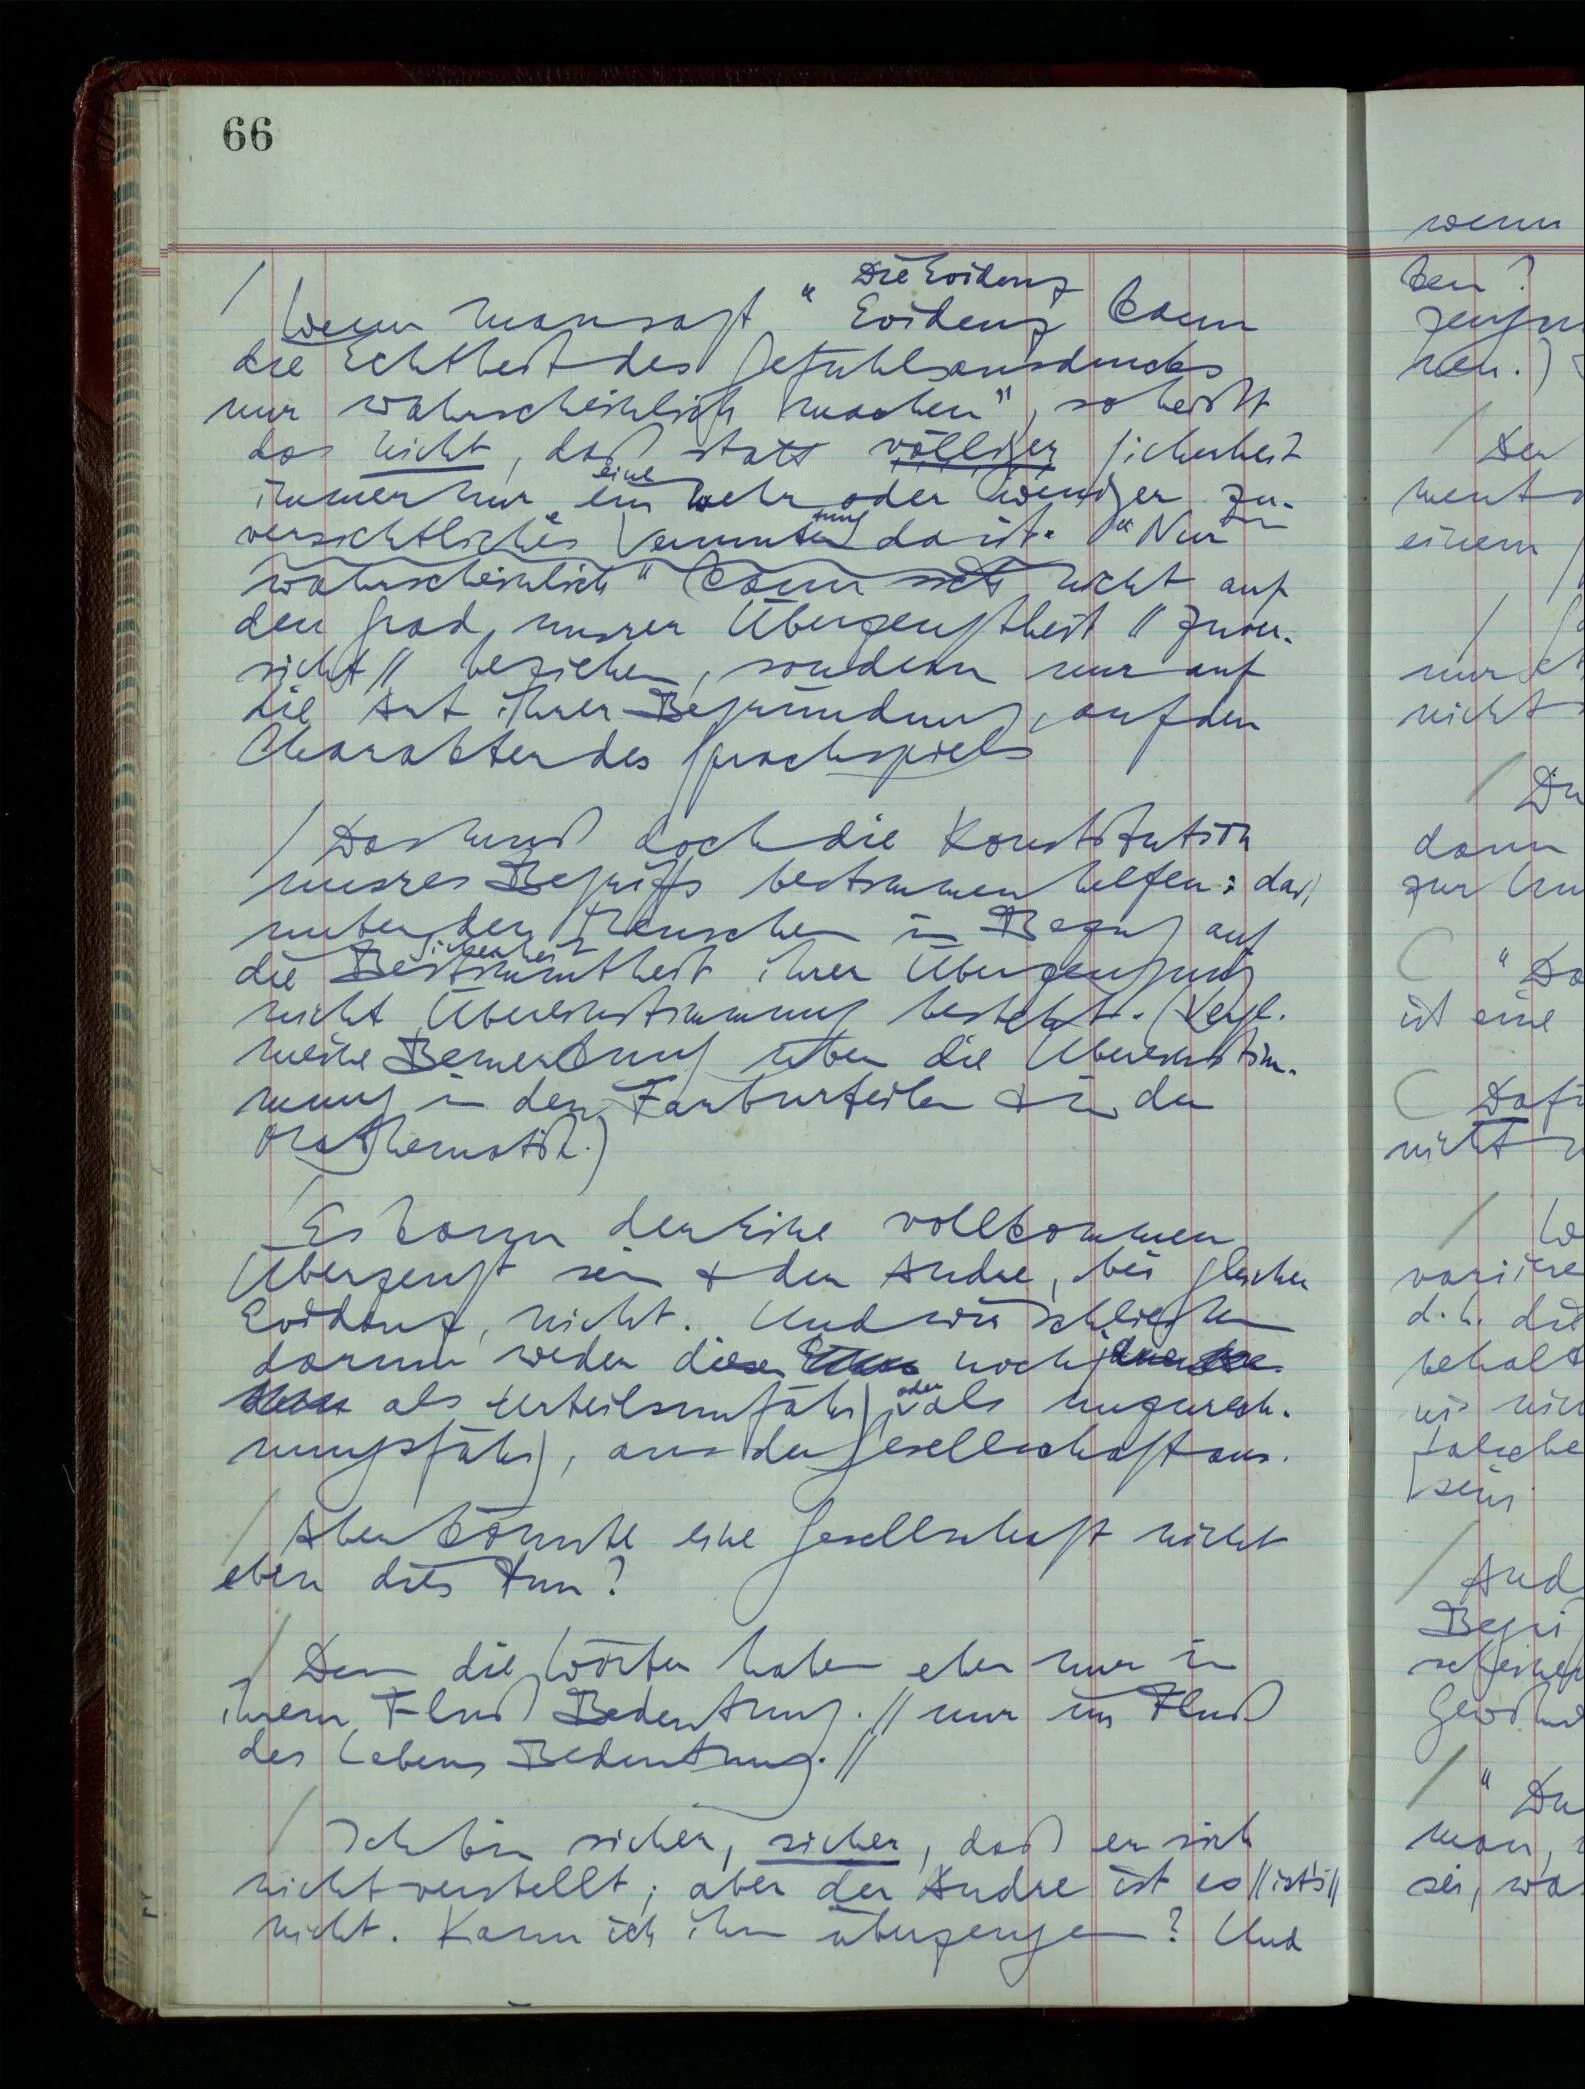 66
/ Wenn man sagt " Die Evidenz
Evidenz kann
die Echtheit des Gefühlsausdrucks
nur wahrscheinlich machen", so heißt
das nicht, daß statt völliger Sicherheit
immer nur ein eine mehr oder weniger zu-
versichtliches Vermuten tung da ist. "Nur
wahrscheinlich" kann sich nicht auf
den Grad unsrer Überzeugtheit // Zuver-
sicht // beziehen, sondern nur auf
die Art ihrer Begründung, auf den
Charakter des Sprachspiels
/ Das muß doch die Konstitution
unsres Begriffs bestimmen helfen: daß
unter den Menschen in Bezug auf
die Bestimmtheit Sicherheit ihrer Überzeugung
nicht Übereinstimmung besteht. (Vergl.
meine Bemerkung über die Übereinstim-
mung in den Farburteilen & in der
Mathematik.)
/ Es kann der Eine vollkommen
Überzeugt sein & der Andre, bei gleicher
Evidenz, nicht. Und wir schließen
darum weder diesen noch jenen
als urteilsunfähig, oder als unzurech-
nungsfähig, aus der Gesellschaft aus.
/ Aber könnte eine Gesellschaft nicht
eben dies tun?
/ Denn die Wörter haben eben nur in
ihrem Fluß Bedeutung. // nur im Fluß
des Lebens Bedeutung. //
/ Ich bin sicher, sicher, daß er sich
nicht verstellt; aber der Andre ist es // ist's //
nicht. Kann ich ihn überzeugen? Und
wenn
ken?
zeugun
nen.)
/ Der
ment
einem
/
nur
nicht
/ Du
dann
zur Um
C "Da
ist eine
C Dafü
nicht
/ We
variiere
d.h. die
behalt
falsche
sein
/ And
Begri
scheiner
/ "Du
man,
sei, wa